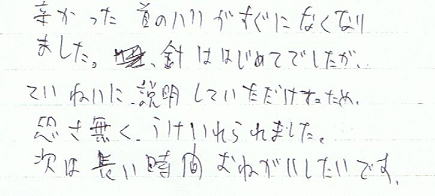 辛かった首のハリがすぐになくなり
ました。針ははじめてでしたが、
ていねいに、説明していただけたため、
恐さ無く、うけいれられました。
次は長い時間おねがいしたいです。